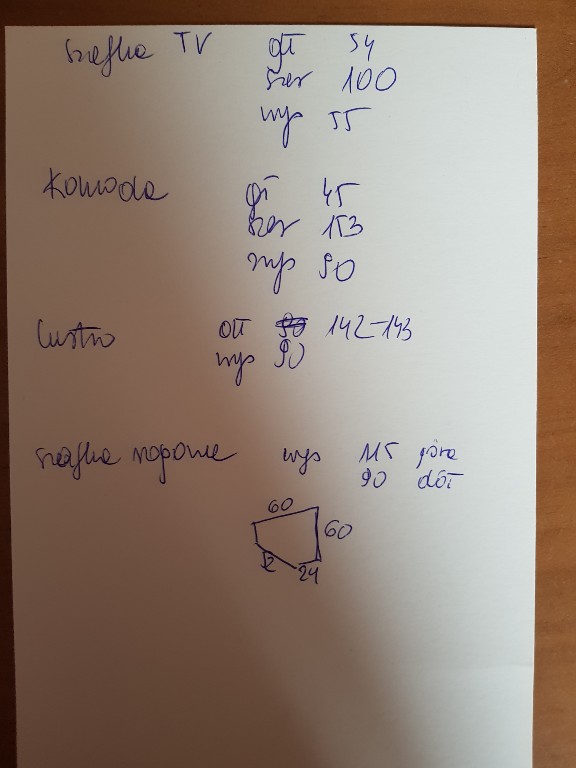 szafka TV gł 54
szer 100
wys 55
Komoda gł 45
szer 153
wys 90
lustro dł 90 142-143
wys 90
szafka rogowa wys 115 góra
90 dół
60
60
24